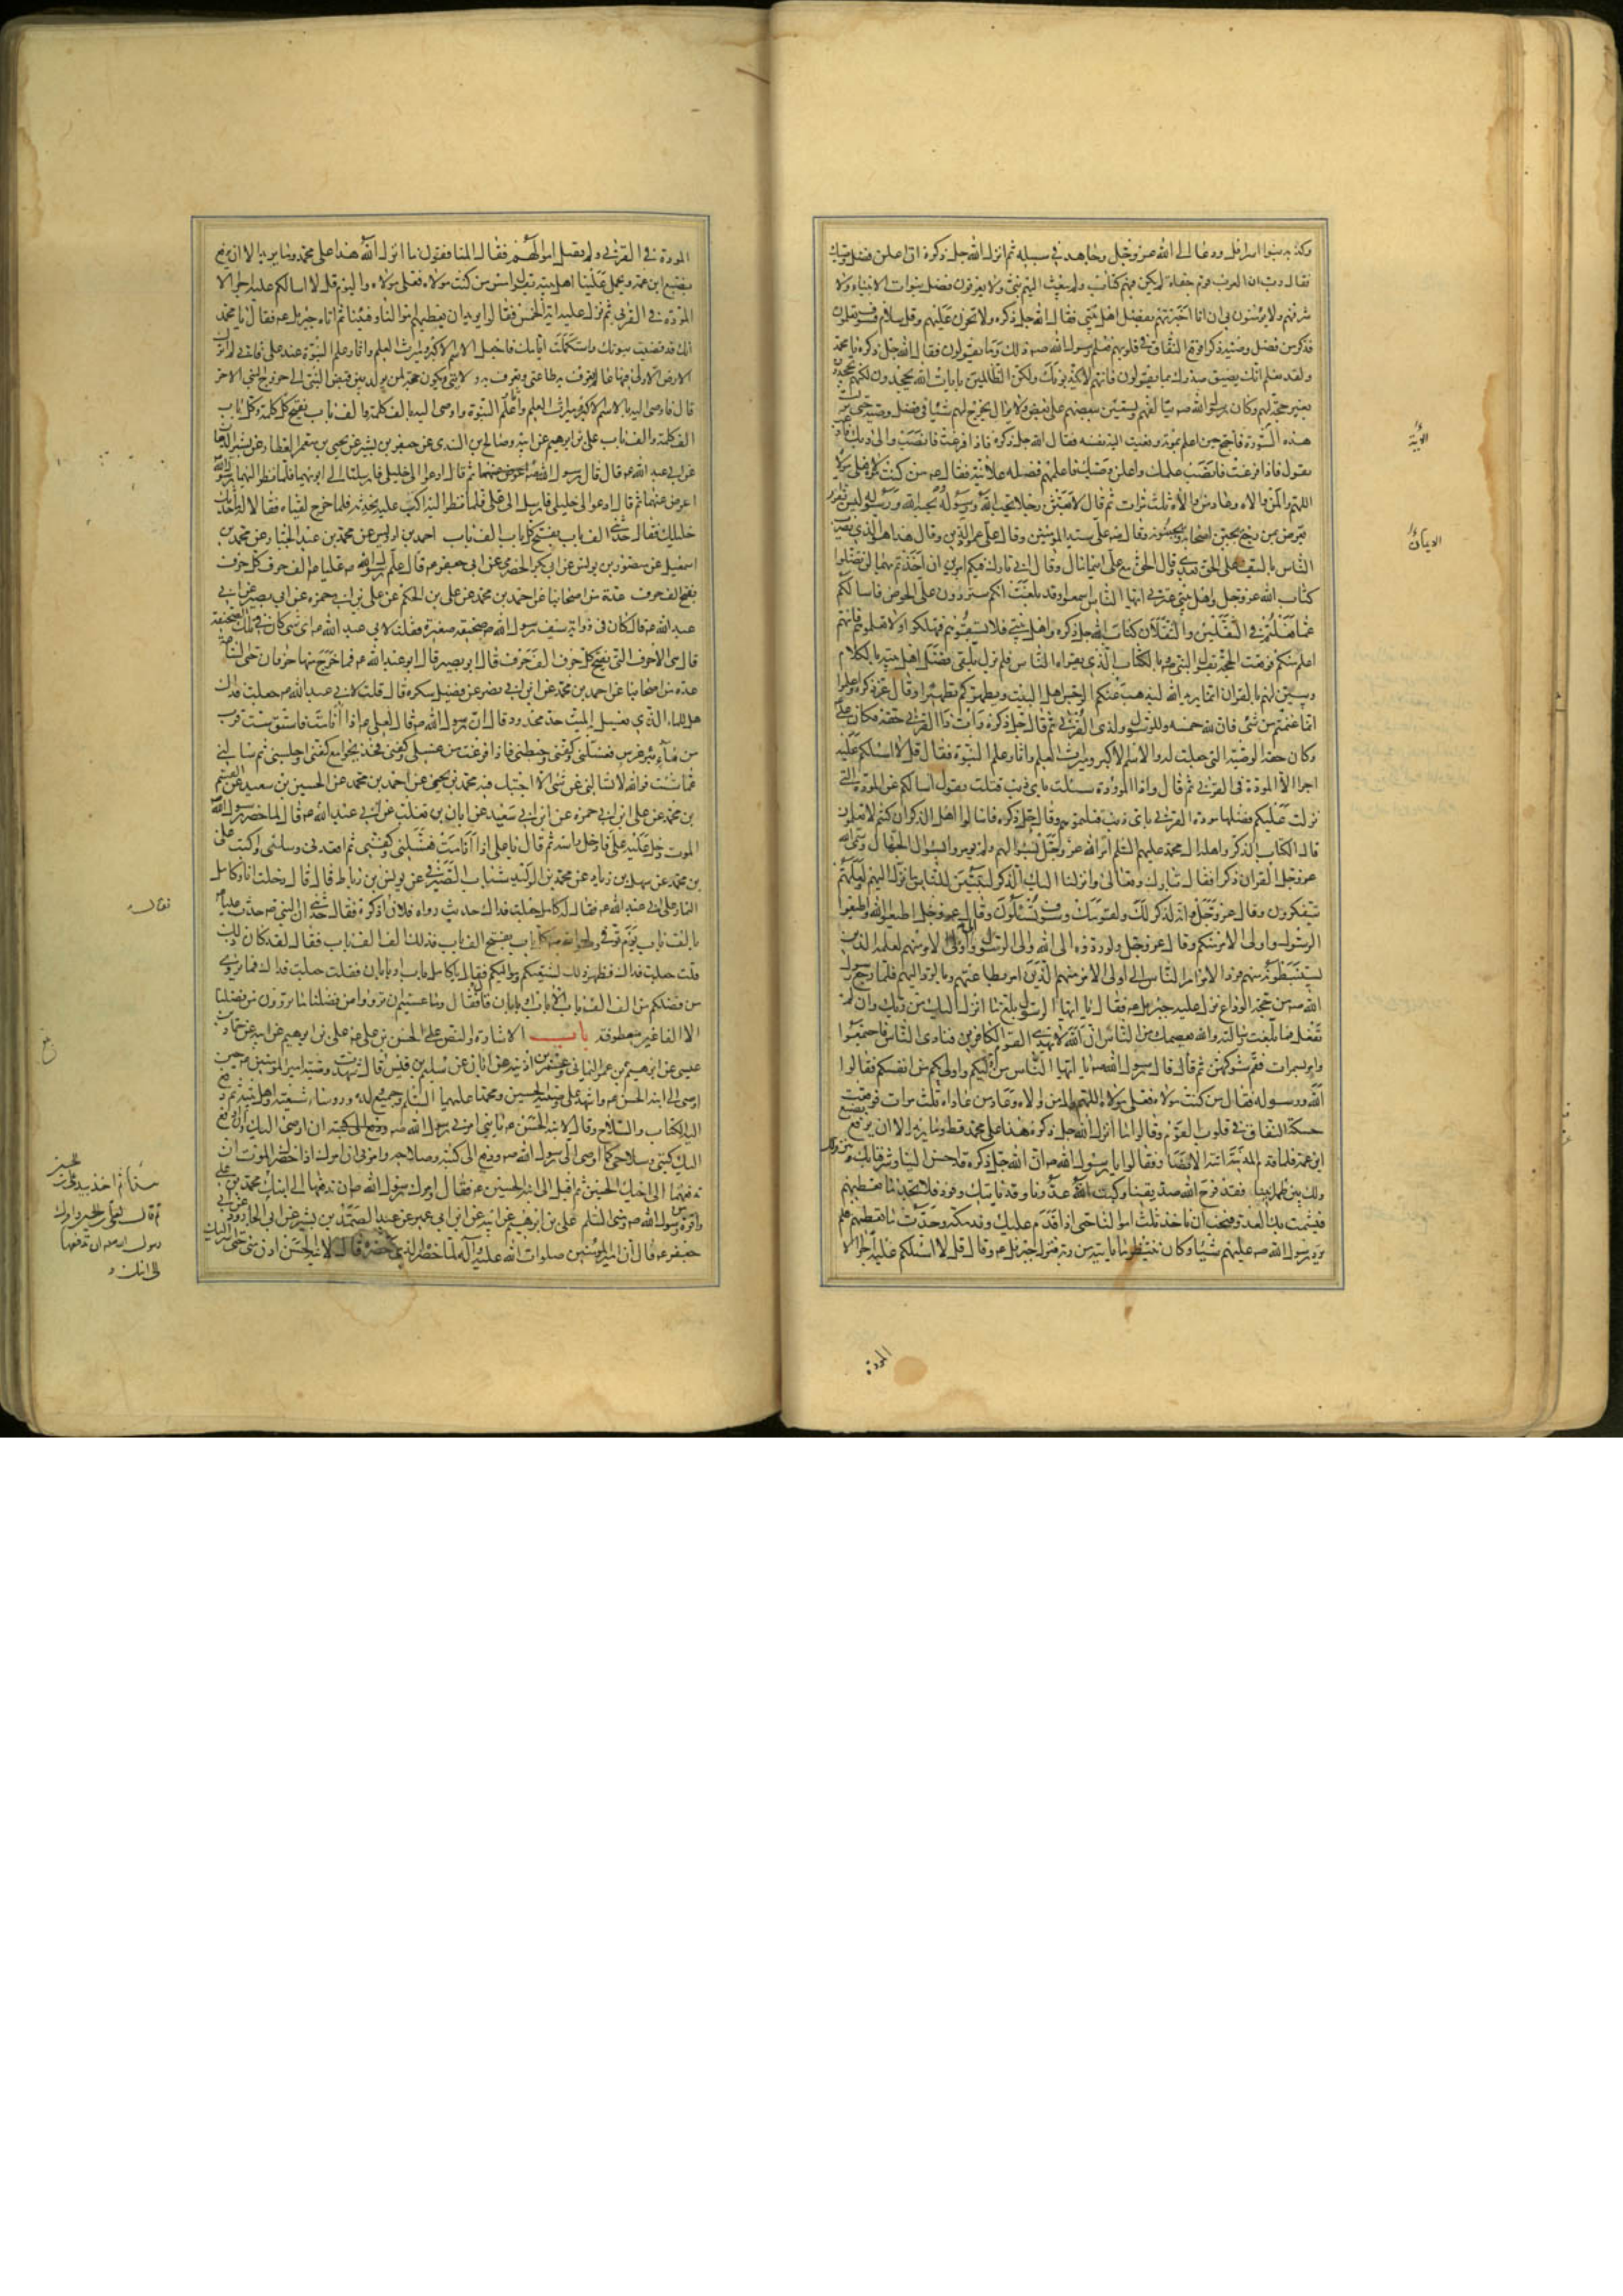 وكذبه بنوا اسرائيل ودعا الى الله عز وجل وجاهد في سبيله ثم انزل الله جل ذكره ان اعلن فضل وصيك
فقال رب ان العرب قوم جفاة لم يكن فيهم كتاب ولم يبعث اليهم نبي ولا يعرفون فضل نبوات الانبياء ولا
شرفهم ولا يؤمنون بي ان انا اخبرتهم بفضل اهل بيتي فقال الله جل ذكره ولا تحزن عليهم وقل سلام فسوف يعلمون
فذكر من فضل وصيه ذكرا فوقع النفاق في قلوبهم فعلم رسول الله صه ذلك وما يقولون فقال الله جل ذكره يا محمد
ولقد نعلم انك يضيق صدرك بما يقولون فانهم لا يكذبونك ولكن الظالمين بايات الله يجحدون لكنهم يجحدون
بغير حجة لهم وكان رسول الله صه يتالفهم ويستعين ببعضهم على بعض ولا يزال يخرج لهم شيئا في فضل وصيه حتى نزلت
هذه السورة فاحتج حين اعلم بموته ونعيت اليه نفسه فقال الله جل ذكره فاذا فرغت فانصب والى ربك فارغب
يقول فاذا فرغت فانصب علمك واعلن وصيك فاعلمهم فضله علانية فقال عه من كنت مولاه فعلي مولاه
اللهم وال من والاه وعاد من عاداه ثلث مرات ثم قال لابعثن رجلا يحب الله ورسوله ويحبه الله ورسوله ليس بفرار
يعرض بمن رجع يجبن اصحابه ويجبنونه وقال صه علي سيد المؤمنين وقال علي عمود الدين وقال هذا هو الذي يضرب
الناس بالسيف على الحق بعدي وقال الحق مع علي اينما مال وقال اني تارك فيكم امرين ان اخذتم بهما لن تضلوا
كتاب الله عز وجل واهل بيتي عترتي ايها الناس اسمعوا وقد بلغت انكم ستردون علي الحوض فاسالكم
عما فعلتم في الثقلين والثقلان كتاب الله جل ذكره واهل بيتي فلا تسبقوهم فتهلكوا ولا تعلموهم فانهم
اعلم منكم فوقعت الحجة بقول النبي صه وبالكتاب الذي يقراه الناس فلم يزل يلقي فضل اهل بيته بالكلام
ويبين لهم بالقران انما يريد الله ليذهب عنكم الرجس اهل البيت ويطهركم تطهيرا وقال عز ذكره واعلموا
انما غنمتم من شئ فان لله خمسه وللرسول ولذي القربى ثم قال جل ذكره وات ذا القربى حقه فكان علي
وكان حقه الوصية التي جعلت له والاسم الاكبر وميراث العلم واثار علم النبوة فقال قل لا اسئلكم عليه
اجرا الا المودة في القربى ثم قال واذا المؤودة سئلت باي ذنب قتلت يقول اسالكم عن المودة التي
نزلت عليكم فضلها مودة القربى باي ذنب قتلتموهم وقال جل ذكره فاسالوا اهل الذكر ان كنتم لا تعلمون
قال الكتاب الذكر واهله ال محمد عليهم السلم امر الله عز وجل بسؤالهم ولم يؤمروا بسؤال الجهال وسمى الله
عز وجل القران ذكرا فقال تبارك وتعالى وانزلنا اليك الذكر لتبين للناس ما نزل اليهم ولعلهم
يتفكرون وقال عز وجل وانه لذكر لك ولقومك وسوف تسئلون وقال عز وجل اطيعوا الله واطيعوا
الرسول واولى الامر منكم وقال عز وجل ولو ردوه الى الله والى الرسول والى اولى الامر منهم لعلمه الذين
يستنبطونه منهم فرد الامر امر الناس الى اولى الامر منهم الذين امر بطاعتهم وبالرد اليهم فلما رجع رسول
الله صه من حجة الوداع نزل عليه جبرئيل عه فقال يا ايها الرسول بلغ ما انزل اليك من ربك وان لم
تفعل فما بلغت رسالته والله يعصمك من الناس ان الله لا يهدي القوم الكافرين فنادى الناس فاجتمعوا
وامر بسمرات فقم شوكهن ثم قال قال رسول الله صه يا ايها الناس من وليكم واولى بكم من انفسكم فقالوا
الله ورسوله فقال من كنت مولاه فعلي مولاه اللهم وال من والاه وعاد من عاداه ثلث مرات فوقعت
حسكة النفاق في قلوب القوم وقالوا ما انزل الله جل ذكره هذا على محمد قط وما يريد الا ان يرفع بضبع
ابن عمه فلما قدم المدينة اتته الانصار فقالوا يا رسول الله صه ان الله جل ذكره قد احسن الينا وشرفنا بك وبنزولك
بين ظهرانينا فقد فرح الله صديقنا وكبت الله عدونا وقد ياتيك وفود فلا تجد ما تعطيهم
فيشمت بك العدو فنحب ان تاخذ ثلث اموالنا حتى اذا قدم عليك وفد مكة وجدت ما تعطيهم فلم
يرد رسول الله صه عليهم شيئا وكان ينتظر ما ياتيه من ربه فنزل جبرئيل عه وقال قل لا اسئلكم عليه اجرا الا
المودة
المودة في القربى ولم يقبل اموالهم فقال المنافقون ما انزل الله هذا على محمد وما يريد الا ان يرفع
بضبع ابن عمه ويحمل علينا اهل بيته يقول امس من كنت مولاه فعلي مولاه واليوم قل لا اسالكم عليه اجرا الا
المودة في القربى ثم نزل عليه اية الخمس فقالوا يريد ان يعطيهم اموالنا وفيئنا ثم اتاه جبرئيل عه فقال يا محمد
انك قد قضيت نبوتك واستكملت ايامك فاجعل الاسم الاكبر وميراث العلم واثار علم النبوة عند علي فاني لم اترك
الارض الا ولي فيها عالم تعرف به طاعتي وتعرف به ولايتي ويكون حجة لمن يولد بين قبض النبي الى خروج النبي الاخر
قال فاوصى اليه بالاسم الاكبر وميراث العلم واثار علم النبوة واوصى اليه بالف كلمة والف باب يفتح كل كلمة وكل باب
الف كلمة والف باب علي بن ابرهيم عن ابيه وصالح بن السندي عن جعفر بن بشير عن يحيى بن معمر العطار عن بشير الدهان
عن ابي عبد الله عه قال قال رسول الله صه في مرضه الذي توفي فيه ادعوا لي خليلي فارسلتا الى ابويهما فلما نظر اليهما رسول الله
اعرض عنهما ثم قال ادعوا لي خليلي فارسل الى علي فلما نظر اليه اكب عليه يحدثه فلما خرج لقياه فقالا له ما حدثك
خليلك فقال حدثني الف باب يفتح كل باب الف باب احمد بن ادريس عن محمد بن عبد الجبار عن محمد بن
اسمعيل عن منصور بن يونس عن ابي بكر الحضرمي عن ابي جعفر عه قال علم رسول الله صه عليا عه الف حرف كل حرف
يفتح الف حرف عدة من اصحابنا عن احمد بن محمد عن علي بن الحكم عن علي بن ابي حمزه عن ابي بصير عن ابي
عبد الله عه قال كان في ذؤابة سيف رسول الله صه صحيفة صغيرة فقلت لابي عبد الله عه اي شئ كان في تلك الصحيفة
قال هي الاحرف التي يفتح كل حرف الف حرف قال ابو بصير قال ابو عبد الله عه فما خرج منها حرفان حتى الساعة
عدة من اصحابنا عن احمد بن محمد عن ابن ابي نصر عن فضيل سكره قال قلت لابي عبد الله عه جعلت فداك
هل للماء الذي يغسل به الميت حد محدود قال ان رسول الله صه قال لعلي عه اذا انا مت فاستق ست قرب
من ماء بئر غرس فغسلني وكفني وحنطني فاذا فرغت من غسلي وكفني فخذ بجوامع كفني واجلسني ثم سائلني
عما شئت فوالله لا تسالني عن شئ الا اجبتك فيه محمد بن يحيى عن احمد بن محمد عن الحسين بن سعيد عن القسم
بن محمد عن علي بن ابي حمزه عن ابن ابي سعيد عن ابان بن تغلب عن ابي عبد الله عه قال لما حضر رسول الله
الموت دخل عليه علي فادخل راسه ثم قال يا علي اذا انا مت فغسلني وكفني ثم اقعدني وسلني واكتب علي
بن محمد عن سهل بن زياد عن محمد بن الوليد شباب الصيرفي عن يونس بن رباط قال قال دخلت انا وكامل
التمار على ابي عبد الله عه فقال له كامل جعلت فداك حديث رواه فلان اذكره فقال حدثني ان النبي صه حدث عليا عه
بالف باب يوم توفي رسول الله صه كل باب يفتح الف باب فذلك الف الف باب فقال لقد كان ذلك
قلت جعلت فداك فظهر ذلك لشيعتكم ومواليكم فقال يا كامل باب او بابان فقلت جعلت فداك فما يروى
من فضلكم من الف الف باب الا باب او بابان قال فقال وما عسيتم ان ترووا من فضلنا ما تروون من فضلنا
الا الفا غير معطوفة باب الاشارة والنص على الحسن بن علي عه علي بن ابرهيم عن ابيه عن حماد بن
عيسى عن ابرهيم بن عمر اليماني وعمر بن اذينه عن ابان عن سليم بن قيس قال شهدت وصية امير المؤمنين عه حين
اوصى الى ابنه الحسن عه واشهد على وصيته الحسين ومحمدا عليهما السلم وجميع ولده ورؤساء شيعته واهل بيته ثم دفع
اليه الكتاب والسلاح وقال لابنه الحسن عه يا بني امرني رسول الله صه ان اوصي اليك وان ادفع
اليك كتبي وسلاحي كما اوصى الي رسول الله صه ودفع الي كتبه وسلاحه وامرني ان امرك اذا حضرك الموت ان
تدفعها الى اخيك الحسين ثم اقبل الى ابنه الحسين عه فقال وامرك رسول الله صه ان تدفعها الى ابنك محمد بن علي
واقرئه من رسول الله صه ومني السلم علي بن ابرهيم عن ابيه عن ابن ابي عمير عن عبد الصمد بن بشير عن ابي الجارود عن ابي
جعفر عه قال ان امير المؤمنين صلوات الله عليه وآله لما حضره الذي حضره قال لابنه الحسن ادن مني حتى اسر اليك
فقال
ثم اخذ بيد
ثم قال لعلي بن الحسين وامرك
رسول الله صه ان تدفعها
الى ابنك